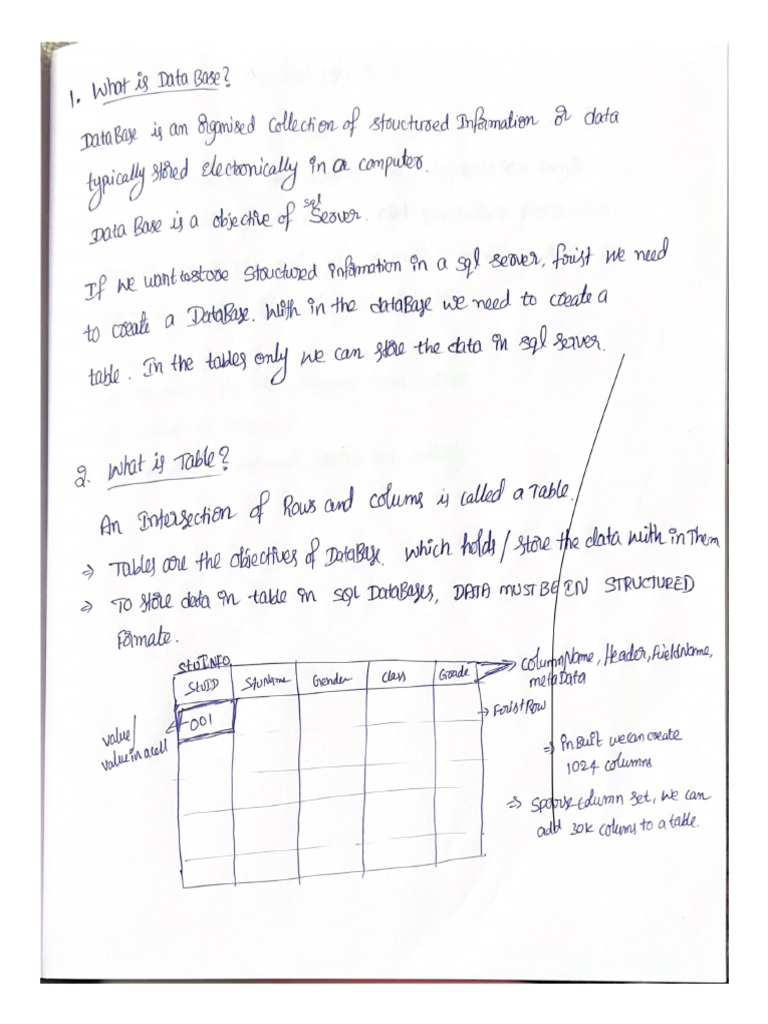 1. What is Data Base?
DataBase is an Organised Collection of Structured Information or data
typically stored electronically in a computer.
Data Base is a objective of sql Server.
If we want to store Structured information in a sql server, first we need
to create a DataBase. With in the dataBase we need to create a
table. In the tables only we can store the data in sql server.
2. What is Table?
An Intersection of Rows and colums is called a Table.
⇒ Tables are the objectives of DataBase. Which holds/store the data with in Them
⇒ To store data in table in SQL DataBases, DATA MUST BE IN STRUCTURED
Formate.
StUINFO
StUID StuName Gender Class Grade
→ ColumnName, Header, FieldName,
metaData
001
→ First Row
value/
value in a cell
⇒ in Built we can create
1024 columns
⇒ Sparse column set, we can
add 30k colums to a table.